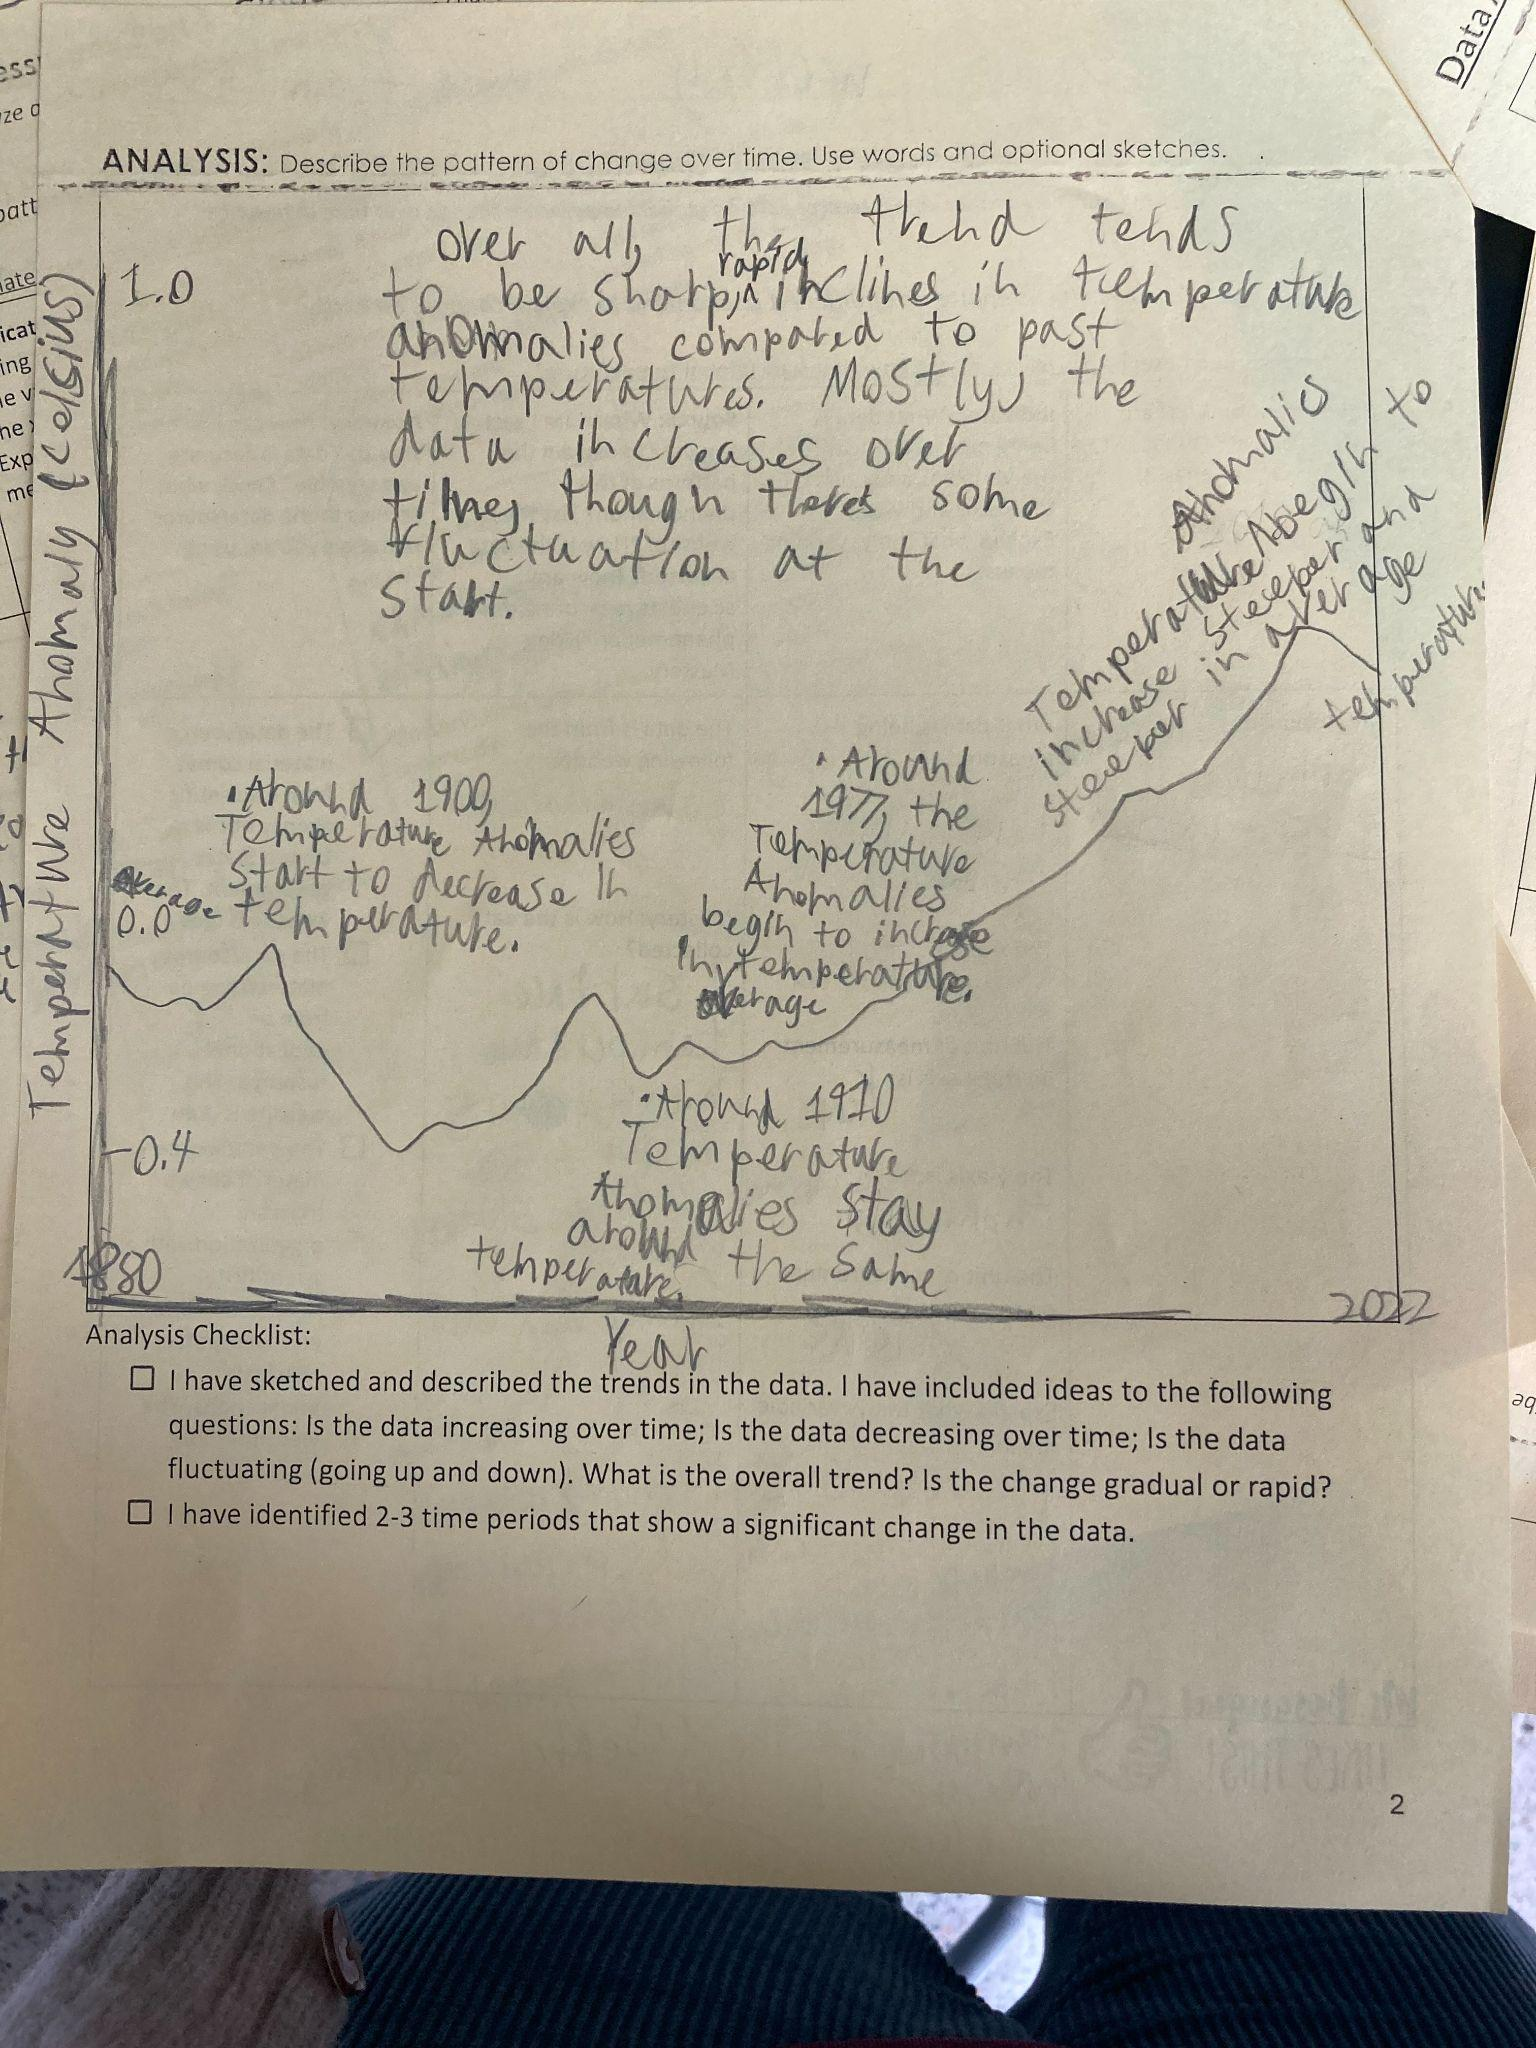 Data
ANALYSIS: Describe the pattern of change over time. Use words and optional sketches.
Over all, the trend tends
to be sharp, rapid inclines in temperature
anomalies compared to past
temperatures. Mostly, the
data increases over
time, though there's some
fluctuation at the
start.
1.0
Temperature Anomaly (celsius)
Anomalies
Temperature begin to
increase steeper and
steeper in average
temperature.
• Around 1900,
Temperature Anomalies
start to decrease in
temperature.
Average
0.0
• Around
1977, the
Temperature
Anomalies
begin to increase
in temperature.
average
• Around 1910
Temperature
Anomalies stay
around the same
temperature.
-0.4
1880
2022
Year
Analysis Checklist:
☐ I have sketched and described the trends in the data. I have included ideas to the following
questions: Is the data increasing over time; Is the data decreasing over time; Is the data
fluctuating (going up and down). What is the overall trend? Is the change gradual or rapid?
☐ I have identified 2-3 time periods that show a significant change in the data.
2